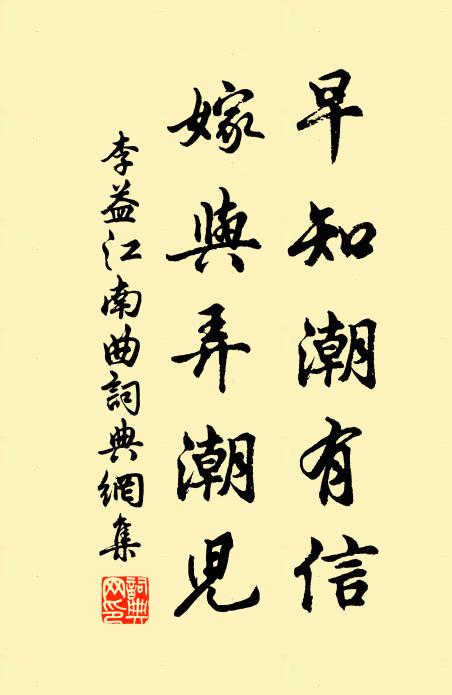 早知潮有信
嫁與弄潮児
李益江南曲詞典網集
詞典網印